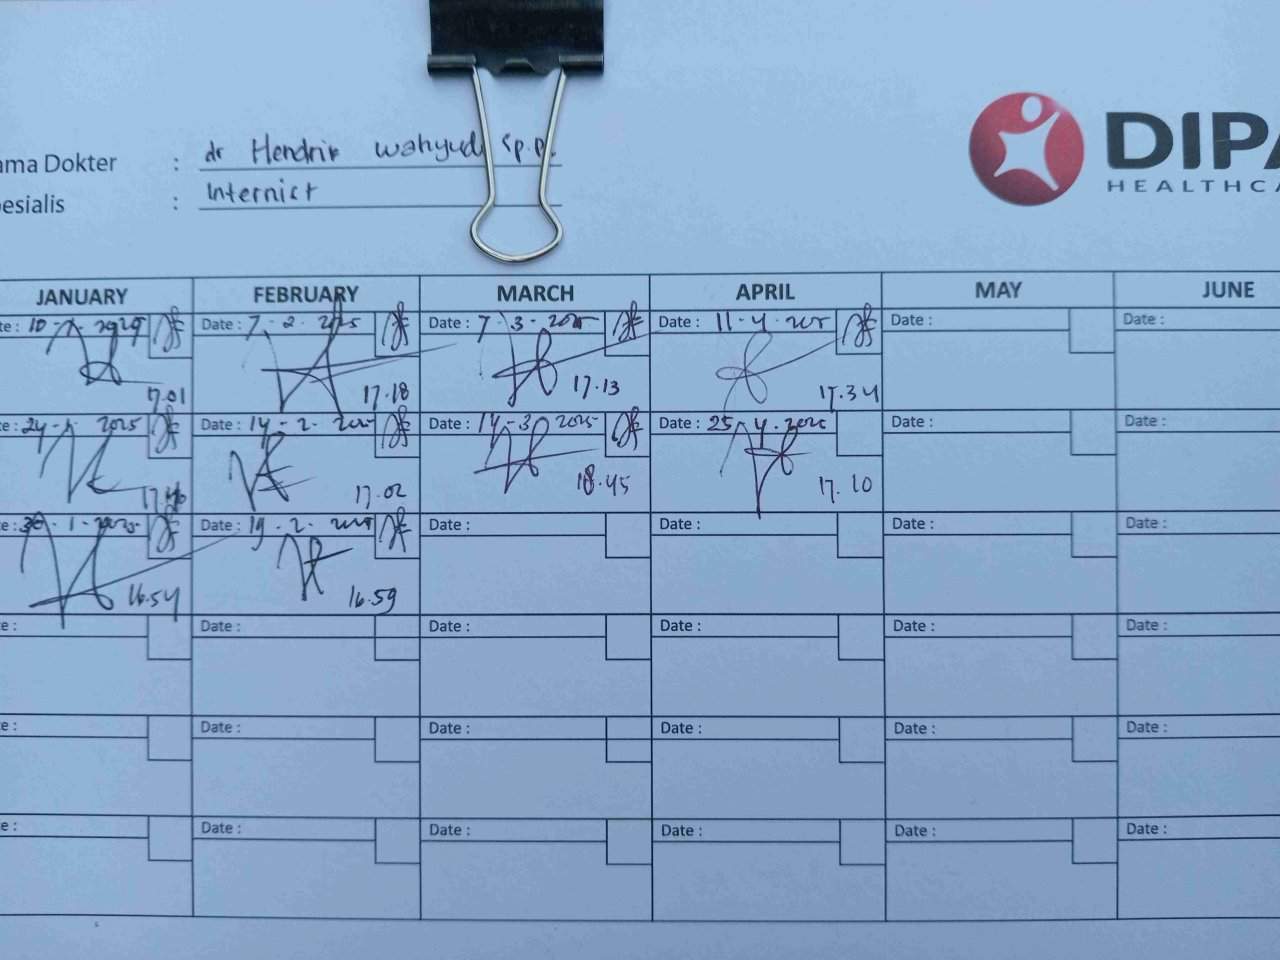 ama Dokter : dr Hendrik Wahyudi Sp.P.
esialis : Internist
DIPA
HEALTHCA
JANUARY FEBRUARY MARCH APRIL MAY JUNE
te : 10-1-2025 Date : 7-2-2025 Date : 7-3-2025 Date : 11-4-2025 Date : Date :
17.01 17.18 17.13 17.34
te : 24-1-2025 Date : 14-2-2025 Date : 14-3-2025 Date : 25-4-2025 Date : Date :
17.46 17.02 18.45 17.10
te : 30-1-2025 Date : 19-2-2025 Date : Date : Date : Date :
16.54 16.59
e : Date : Date : Date : Date : Date :
e : Date : Date : Date : Date : Date :
e : Date : Date : Date : Date : Date :